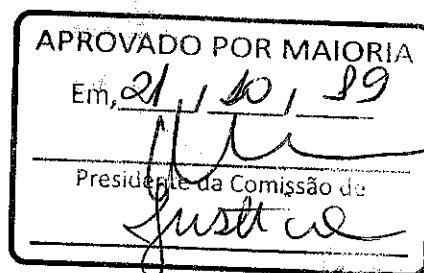 APROVADO POR MAIORIA
Em, 21 / 10 / 89
Presidente da Comissão de
Justiça